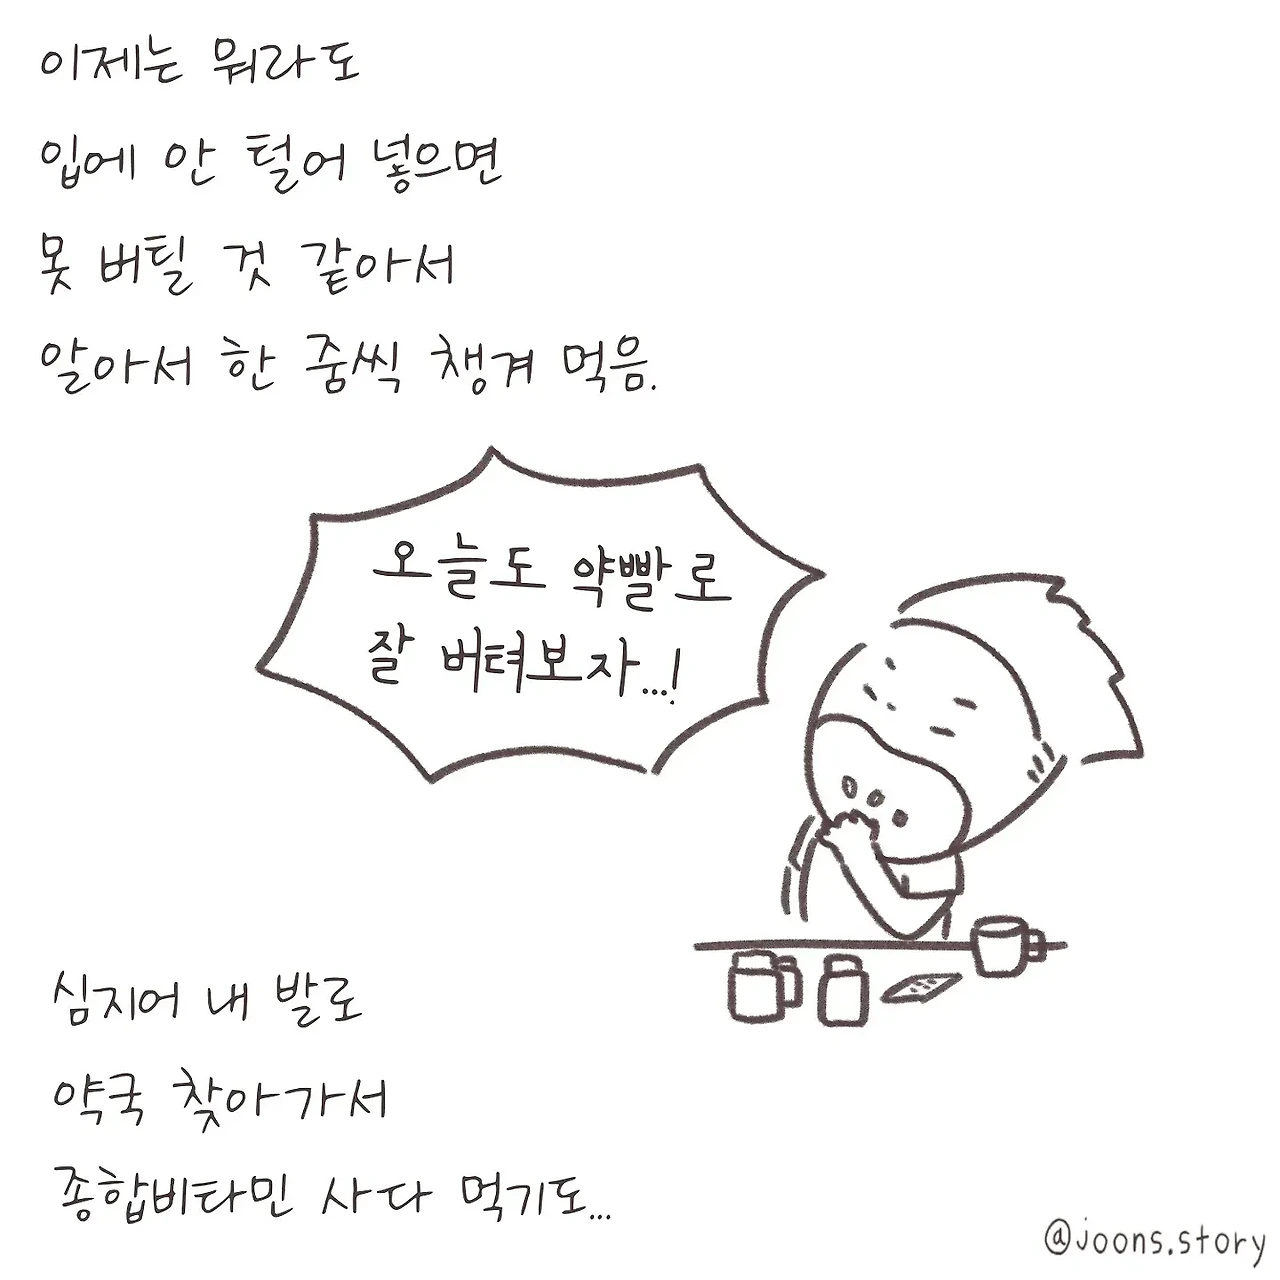 이제는 뭐라도
입에 안 털어 넣으면
못 버틸 것 같아서
알아서 한 줌씩 챙겨 먹음.
오늘도 약빨로
잘 버텨보자...!
심지어 내 발로
약국 찾아가서
종합비타민 사다 먹기도...
@joons.story